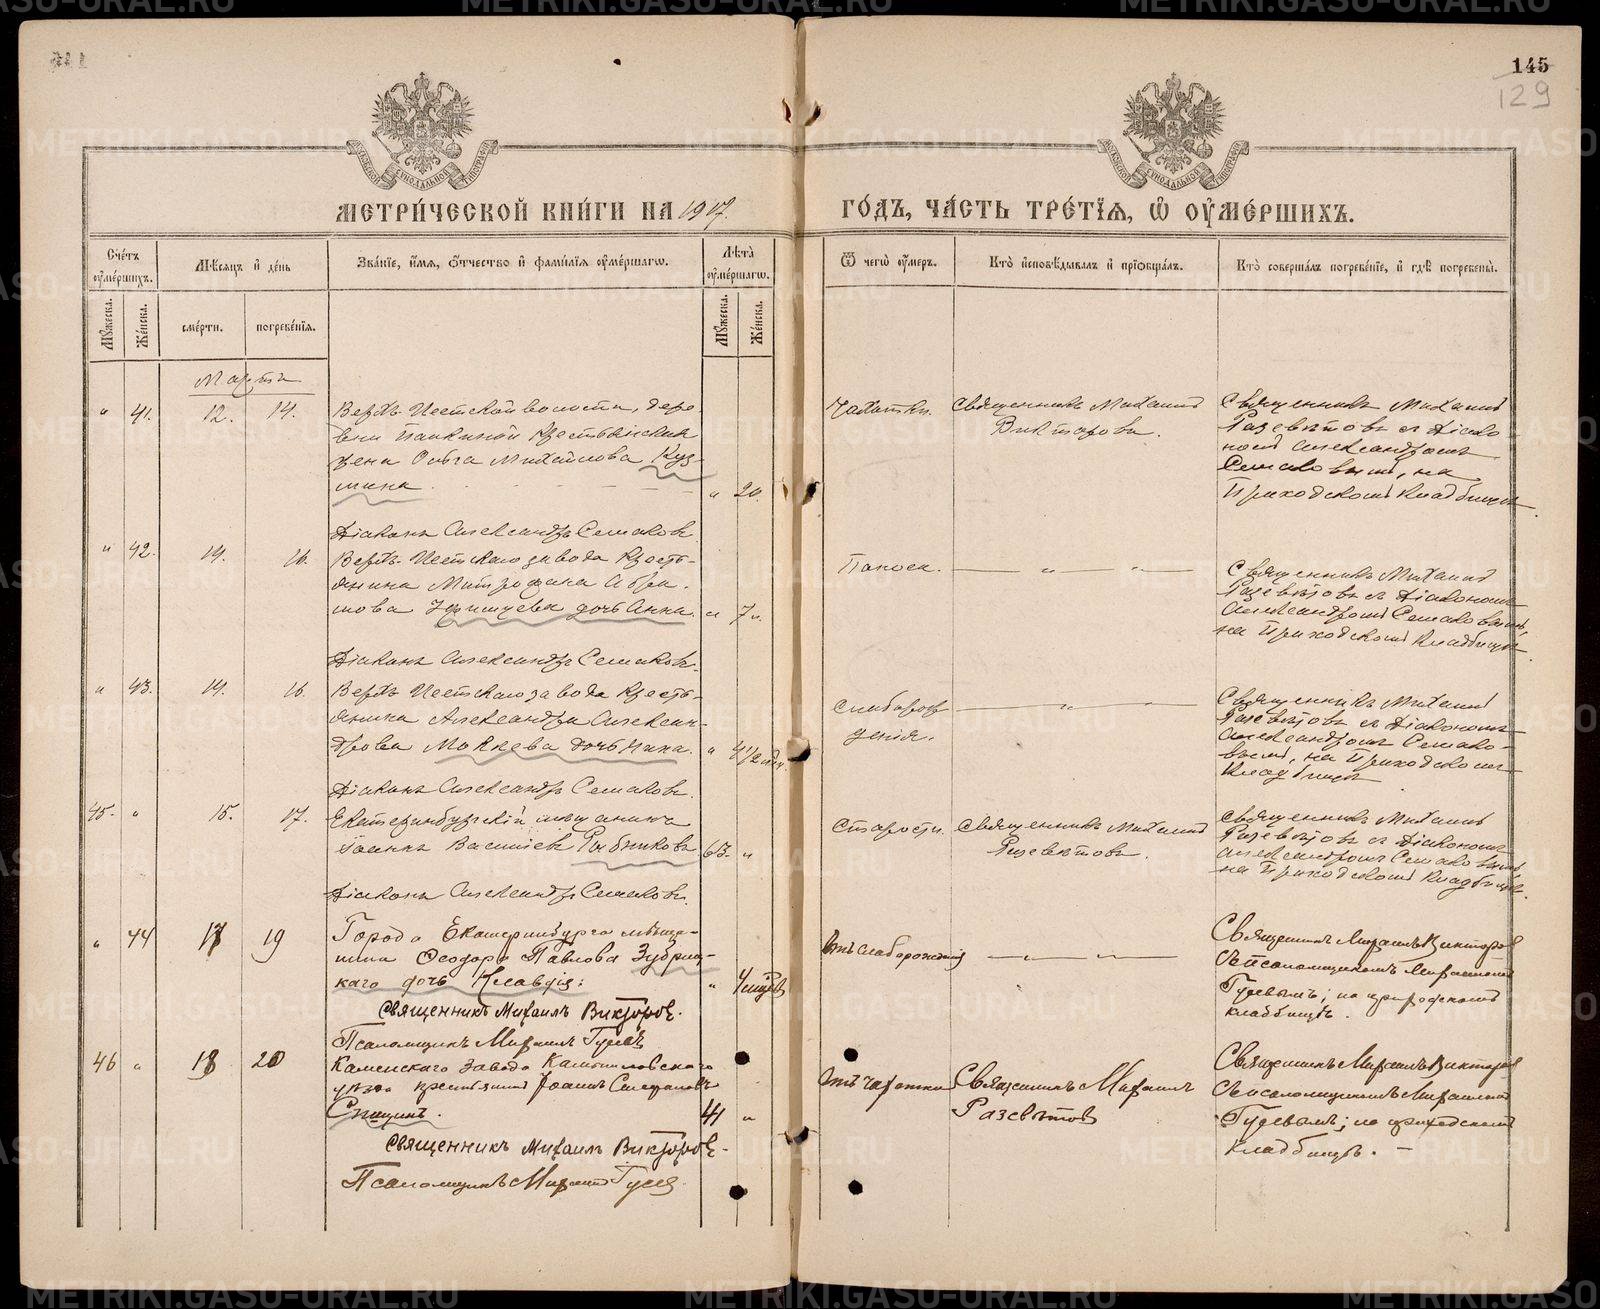 145
129
МЕТРИ́ЧЕСКОЙ КНИ́ГИ НА 1917 ГО́ДЪ, ЧА́СТЬ ТРЕ́ТІЯ, Ѽ ОУМЕ́РШИХЪ.
Сче́тъ оумéршихъ.
Мѣсяцъ и де́нь
Зва́ніе, и́мя, о́тчество и фами́лія оумéршагѡ.
Лѣта̀ оумéршагѡ.
Ѿ чегѡ̀ оу́меръ.
Кто̀ исповѣ́дывалъ и пріѡбща́лъ.
Кто̀ соверша́лъ погребе́ніе, и гдѣ̀ погребены̀.
Мꙋ́жеска.
Же́нска.
сме́рти.
погребе́нія.
Мꙋ́жеска.
Же́нска.
Марта
" 41. 12. 14.
Верхъ-Исетской волости, дере-
вни Палкиной крестьянская
жена Ольга Михайлова Куз-
мина " 20.
Чахотки.
Священникъ Михаилъ
Викторовъ.
Священникъ Михаилъ
Разсвѣтовъ съ Діако
номъ Александромъ
Семаковымъ, на
Приходскомъ кладбищѣ.
Діаконъ Александръ Семаковъ.
" 42. 14. 16.
Верхъ-Исетскаго завода кресть-
янина Митрофана Абра-
мова дочь Анна. " 7
Поноса. — " — " —
Священникъ Михаилъ
Разсвѣтовъ съ Діакономъ
Александромъ Семаковымъ,
на Приходскомъ кладбищѣ.
Діаконъ Александръ Семаковъ.
" 43. 14. 16.
Верхъ-Исетскаго завода кресть-
янина Александра Алексан-
дрова Мокѣева дочь Нина. " 4 1/2
Слаборож
денія. — " — " —
Священникъ Михаилъ
Разсвѣтовъ съ Діакономъ
Александромъ Семако-
вымъ, на Приходскомъ
кладбищѣ
Діаконъ Александръ Семаковъ.
45. " 15. 17.
Екатеринбургскій мѣщанинъ
Іоаннъ Васильевъ Рыбниковъ 63. "
Старости.
Священникъ Михаилъ
Разсвѣтовъ.
Священникъ Михаилъ
Разсвѣтовъ съ Діакономъ
Александромъ Семаковымъ,
на Приходскомъ кладбищѣ.
Діаконъ Александръ Семаковъ.
" 44 17 19
Города Екатеринбурга мѣща-
нина Ѳеодора Павлова Зубриц-
каго дочь Клавдія: " 4 мѣсяц
Отъ слаборожденія — " — " —
Священникъ Михаилъ Викторовъ
съ псаломщикомъ Михаиломъ
Гусевымъ; на приходскомъ
кладбищѣ.
Священникъ Михаилъ Викторовъ.
Псаломщикъ Михаилъ Гусевъ
46 " 18 20
Каменскаго завода Камышловскаго
уѣзда крестьянинъ Іоаннъ Стефановъ
Спицинъ. 41 "
Отъ чахотки
Священникъ Михаилъ
Разсвѣтовъ
Священникъ Михаилъ Викторовъ
съ псаломщикомъ Михаиломъ
Гусевымъ; на приходскомъ
кладбищѣ. —
Священникъ Михаилъ Викторовъ.
Псаломщикъ Михаилъ Гусевъ
METRIKI.GASO-URAL.RU